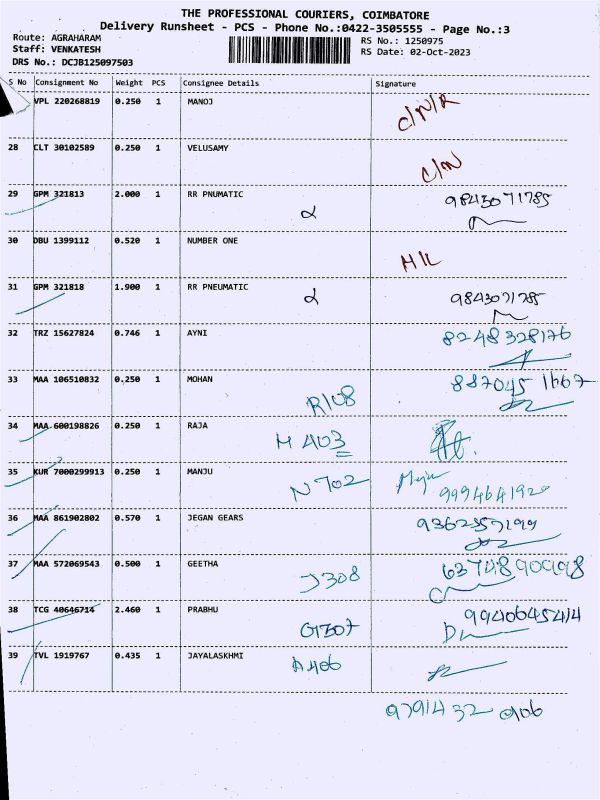 THE PROFESSIONAL COURIERS, COIMBATORE
Delivery Runsheet - PCS - Phone No.:0422-3505555 - Page No.:3
Route: AGRAHARAM
RS No.: 1250975
Staff: VENKATESH
RS Date: 02-Oct-2023
DRS No.: DCJB125097503
S No Consignment No Weight PCS Consignee Details Signature
VPL 220268819 0.250 1 MANOJ C/N/R
28 CLT 30102589 0.250 1 VELUSAMY
29 GPM 321813 2.000 1 RR PNUMATIC 9843071785
30 DBU 1399112 0.520 1 NUMBER ONE
31 GPM 321818 1.900 1 RR PNEUMATIC 9843071785
32 TRZ 15627824 0.746 1 AYNI 8248328176
33 MAA 106510832 0.250 1 MOHAN R108 8870451667
34 MAA 600198826 0.250 1 RAJA H 403
35 KUR 7000299913 0.250 1 MANJU N 702 9994641920
36 MAA 861902802 0.570 1 JEGAN GEARS
37 MAA 572069543 0.500 1 GEETHA J308
38 TCG 40646714 2.460 1 PRABHU G1307 9940645414
39 TVL 1919767 0.435 1 JAYALASKHMI A406
9791432 906